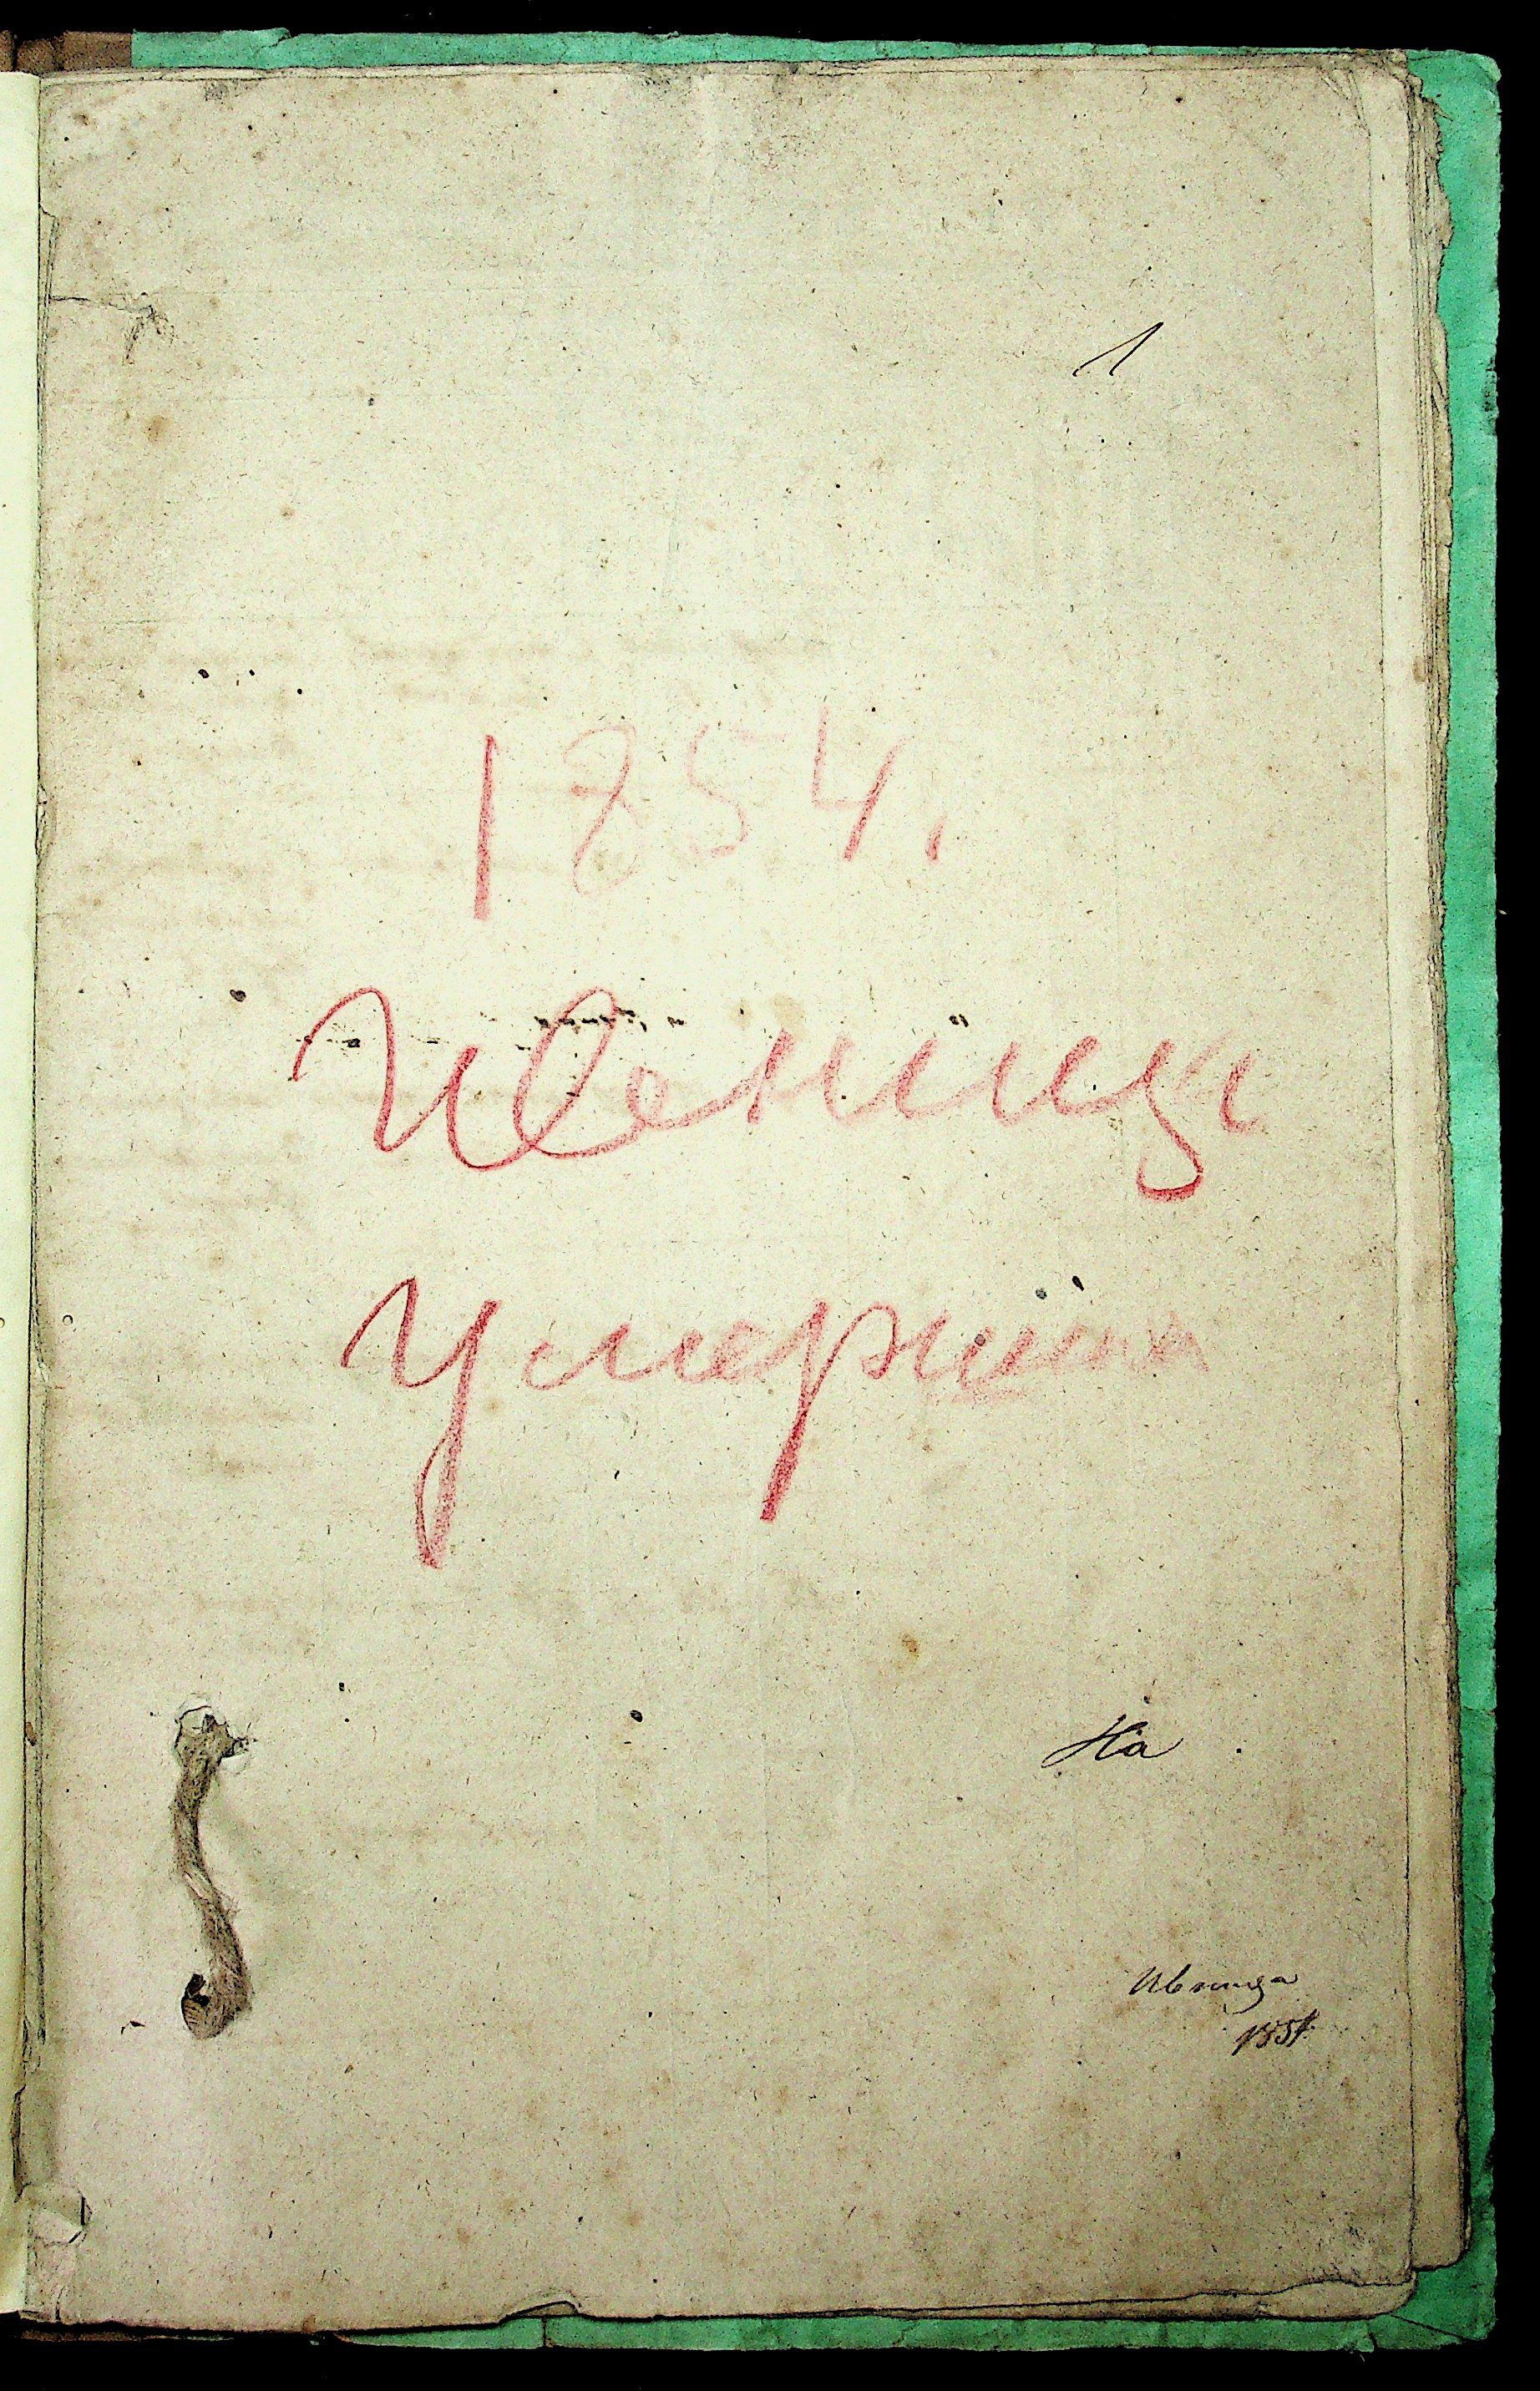 1
1854.
Ивница
Умершіи
На
Ивница
1854